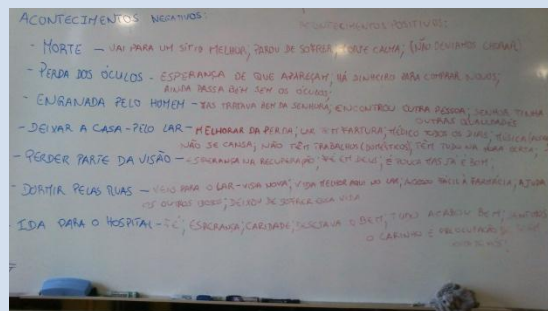 ACONTECIMENTOS NEGATIVOS: ACONTECIMENTOS POSITIVOS:
- MORTE - VAI PARA UM SÍTIO MELHOR, PAROU DE SOFRER, MORTE CALMA; (NÃO DEVIAMOS CHORAR)
- PERDA DOS ÓCULOS - ESPERANÇA DE QUE APAREÇAM, HÁ DINHEIRO PARA COMPRAR NOVOS;
AINDA PASSA BEM SEM OS ÓCULOS;
- ENGANADA PELO HOMEM - TRATAVA BEM DA SENHORA, ENCONTROU OUTRA PESSOA; TINHA
OUTRAS QUALIDADES
- DEIXAR A CASA - PELO LAR - MELHORAR DA PERDA; FARTURA; MÉDICO TODOS OS DIAS;
NÃO SE CANSA, NÃO TÊM TRABALHOS (DOMÉSTICOS), TÊM TUDO NA HORA CERTA
- PERDER PARTE DA VISÃO - ESPERANÇA NA RECUPERAÇÃO; FÉ EM DEUS; É BOM
- DORMIR PELAS RUAS - VEIO PARA O LAR - VIDA NOVA; VIDA MELHOROU NO LAR, ACESSO FÁCIL À FARMÁCIA, AJUDA
OS OUTROS; DEIXOU DE SOFRER
- IDA PARA O HOSPITAL - FÉ; ESPERANÇA; CARIDADE; DESEJAVA O BEM; TUDO ACABOU BEM;
O CARINHO E